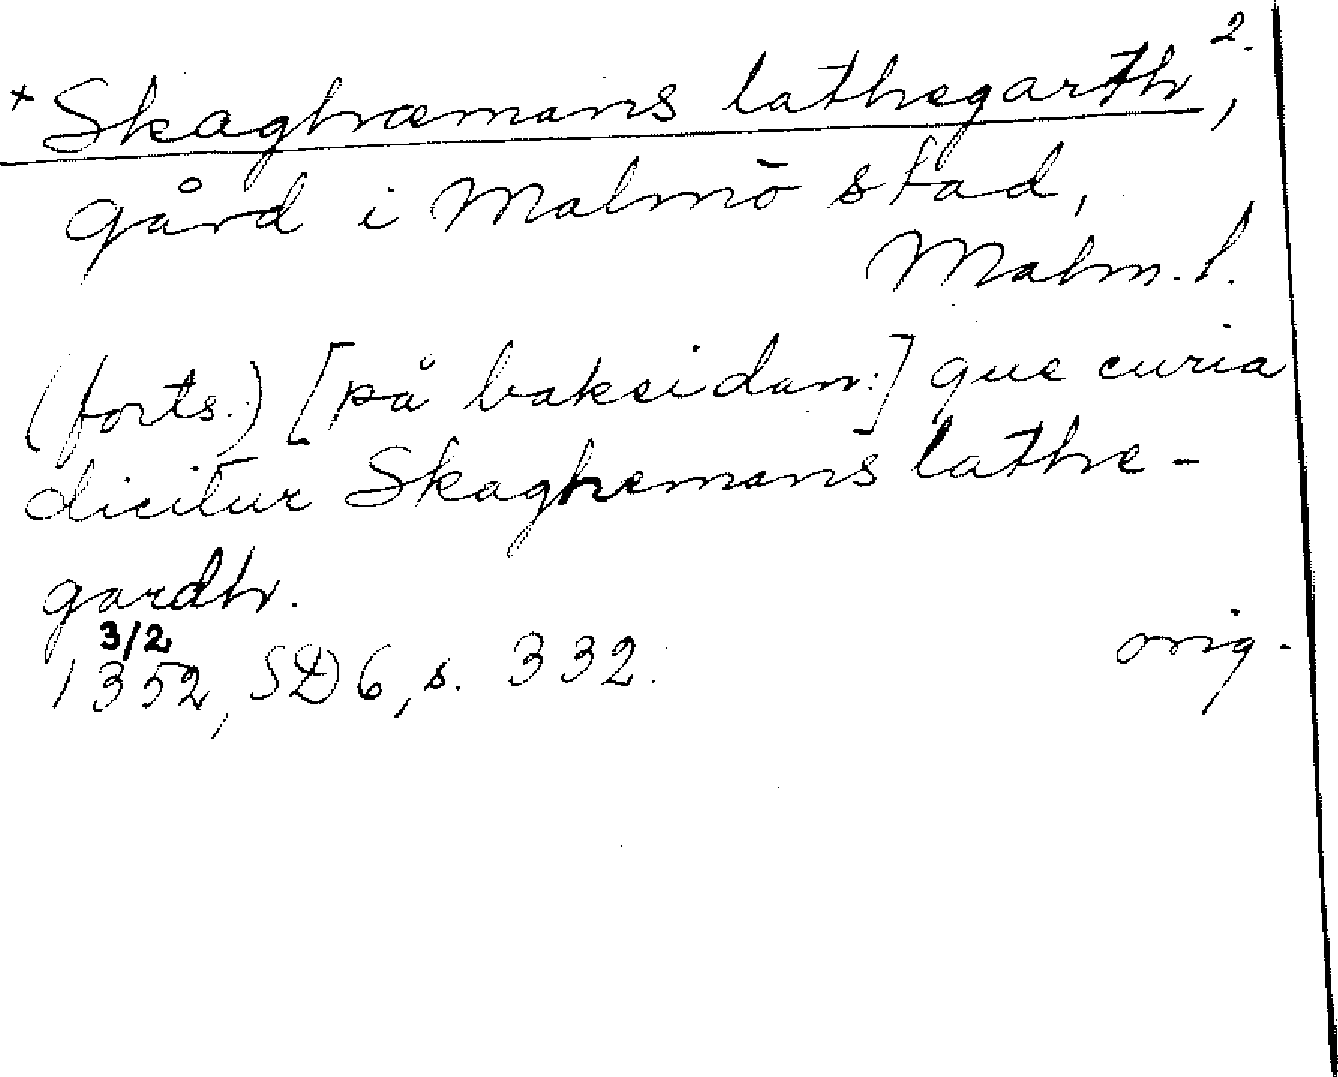 2.
+ Skaghræmans lathegarth,
gård i Malmö stad,
Malm. l.
(forts.) [på baksidan:] que curia
dicitur Skaghemans lathe-
gardh.
3/2
1352, SD 6, s. 332. orig.